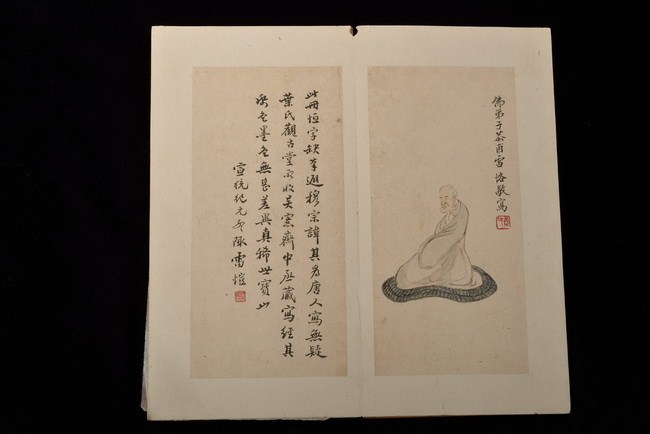 佛弟子茶雷愷敬寫
此冊恒字缺筆避穆宗諱其為唐人寫無疑
葉氏觀古堂所收吳愙齋中丞藏寫經其
紙色墨色無甚差異真稀世寶也
宣統紀元孟陬雷愷